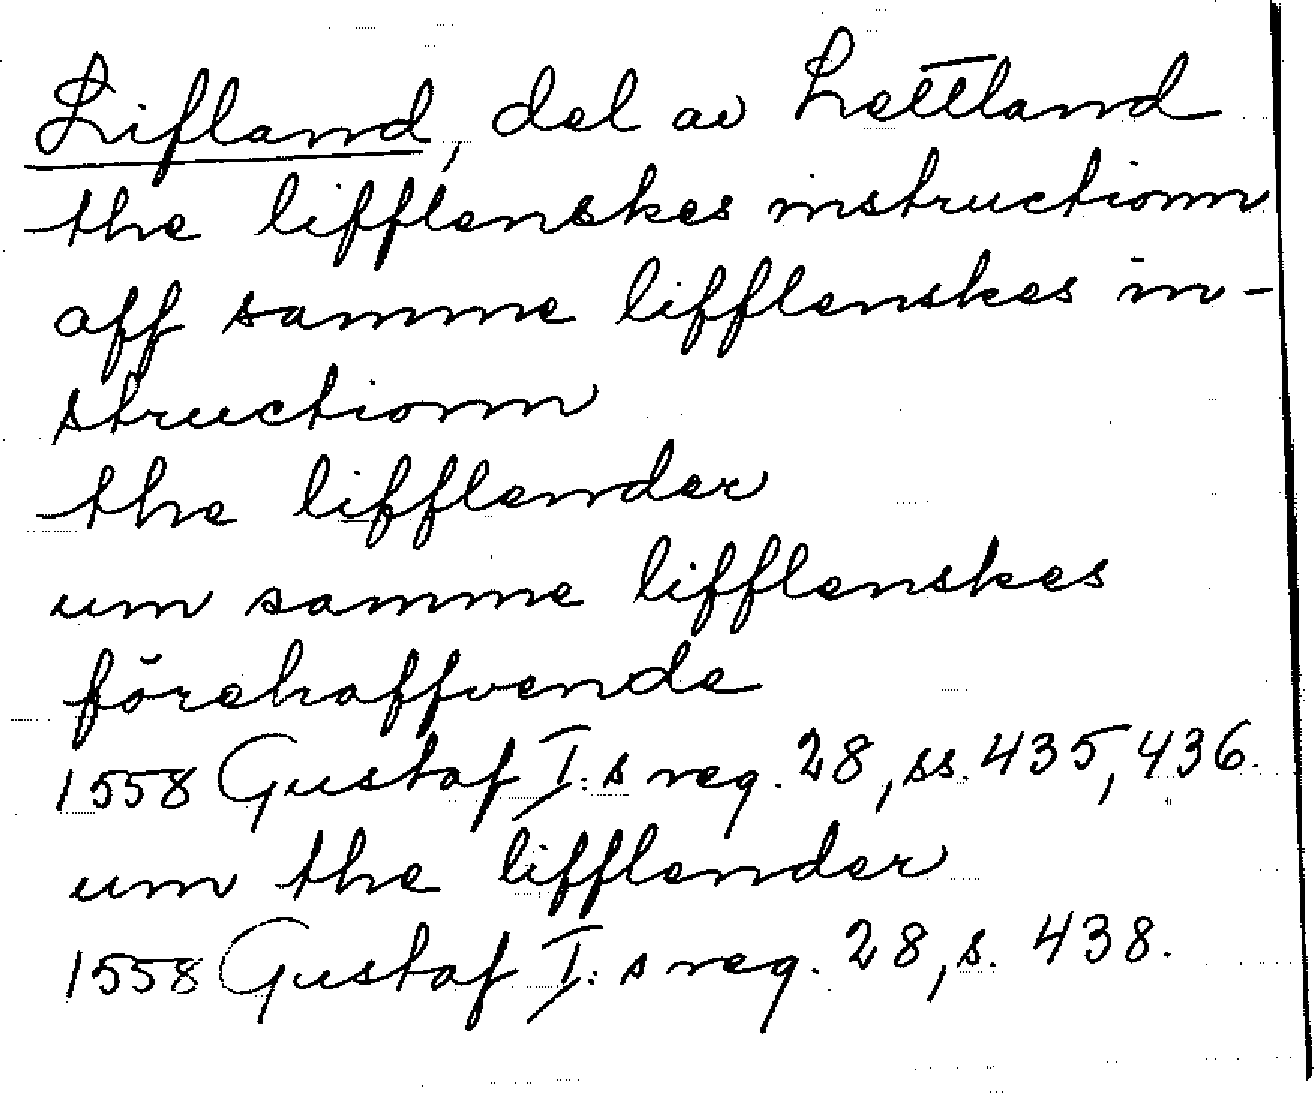 Lifland, del av Lettland
the lifflenskes instructionn
aff samme lifflenskes in-
structionn
the lifflender
um samme lifflenskes
förehaffvende
1558 Gustaf I:s reg. 28, ss. 435, 436.
um the lifflender
1558 Gustaf I:s reg. 28, s. 438.